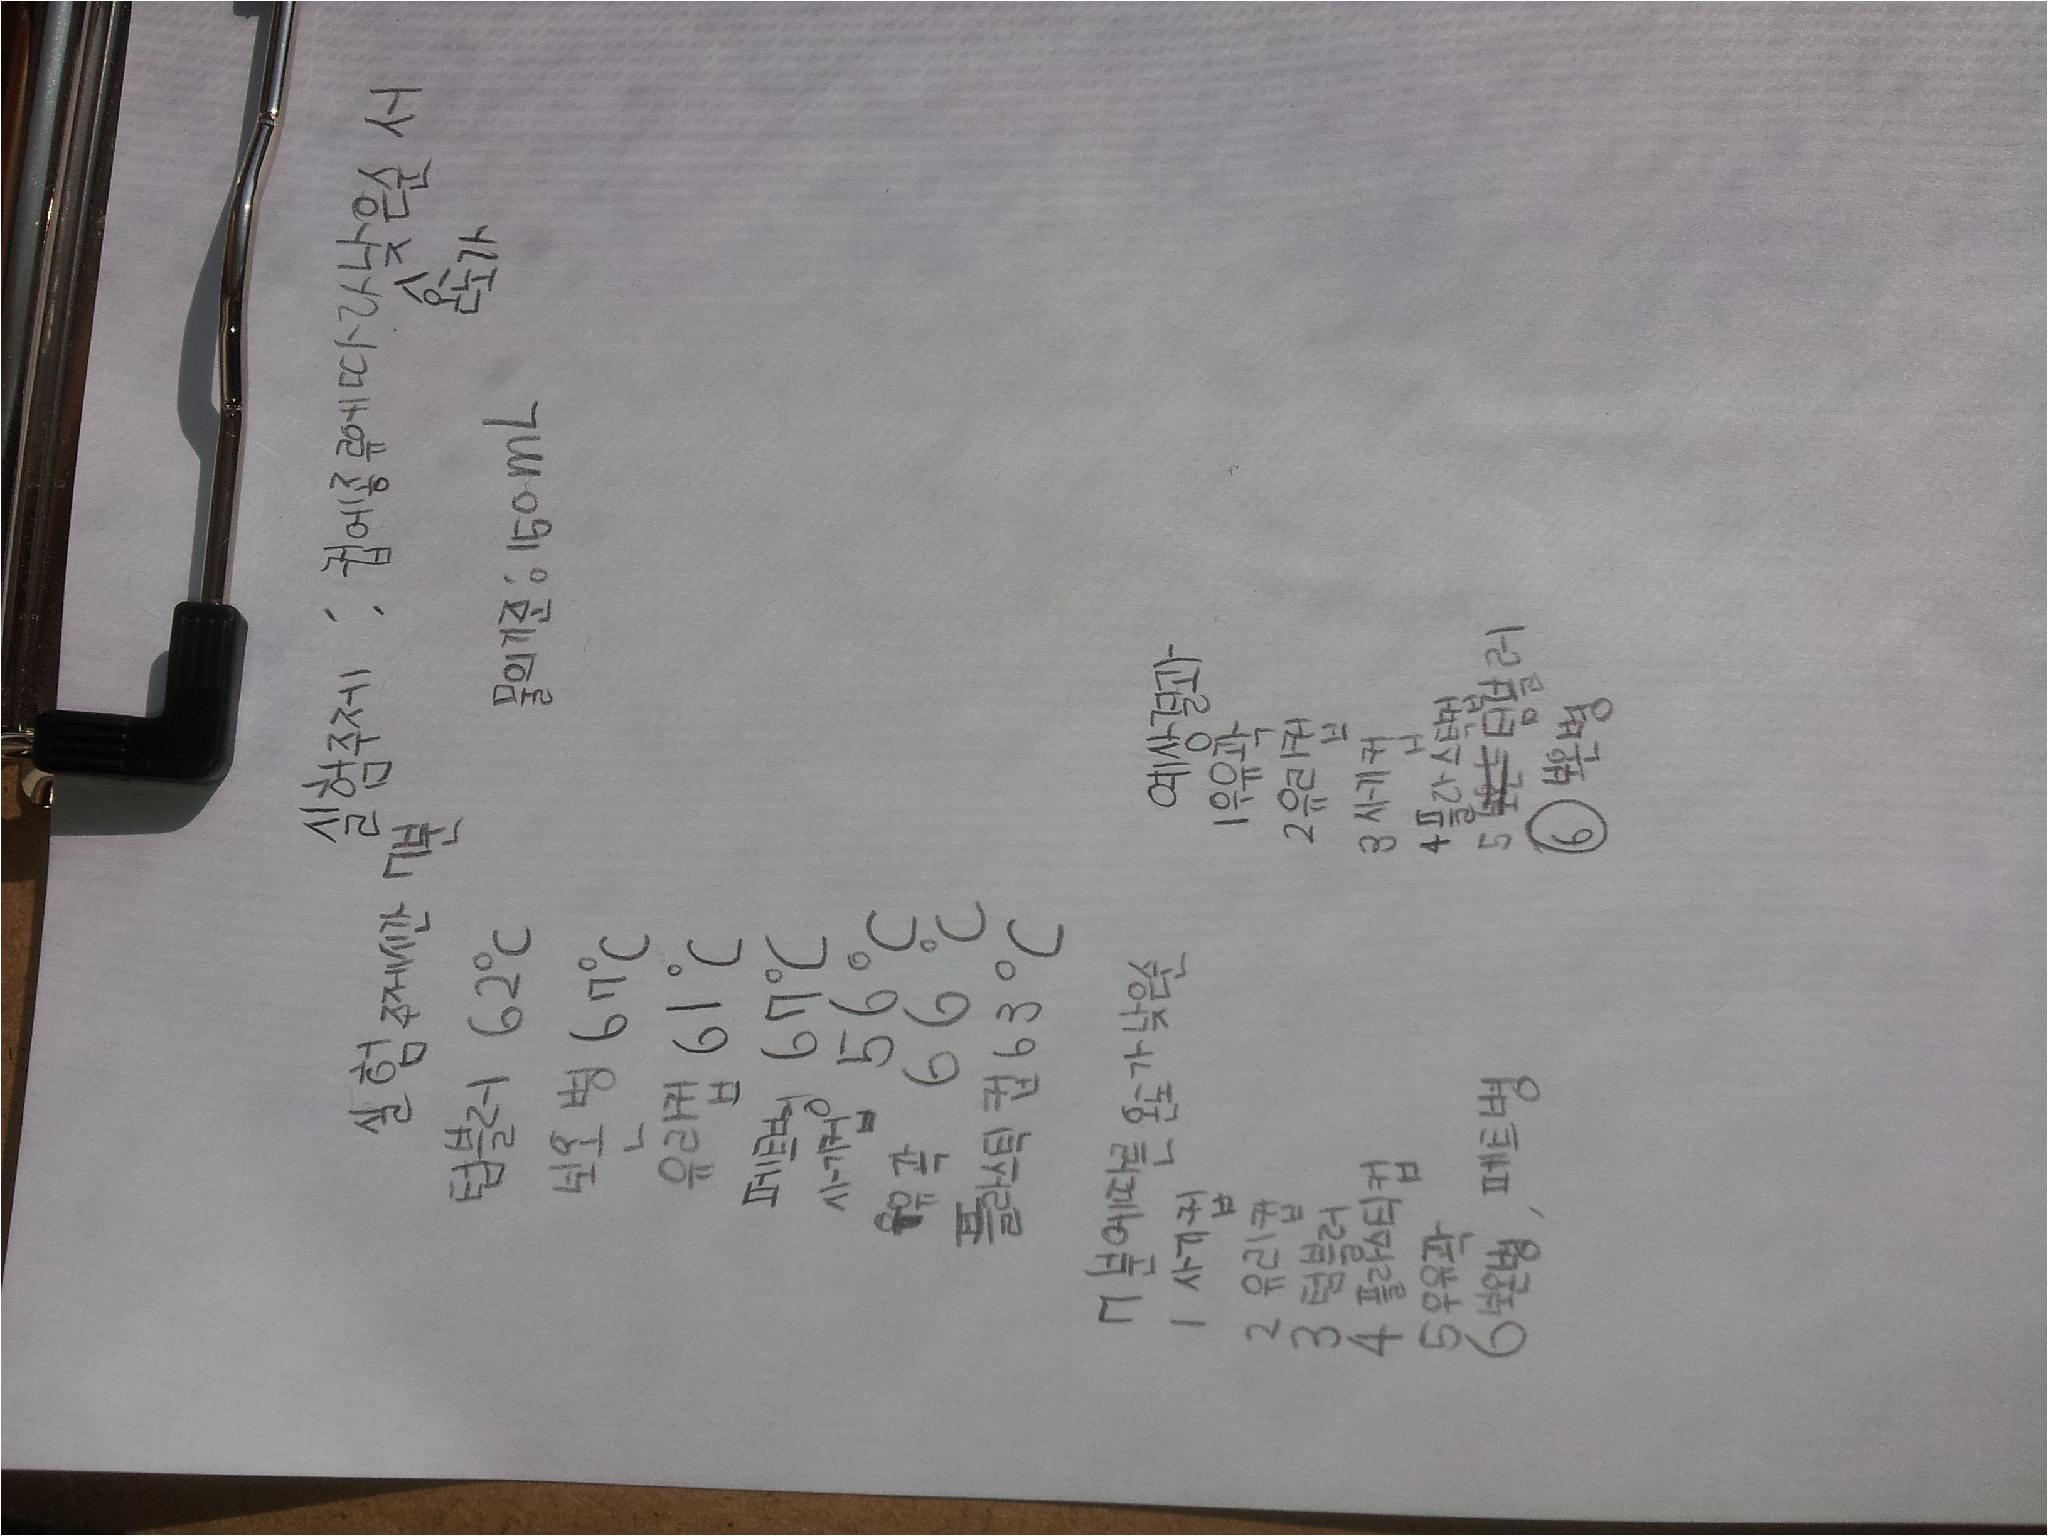 실험주제 : 컵에종류에따라낮은순서
온도가
물의기준 : 150mL
실험주제시간 7분
텀블러 62°C
보온병 67°C
유리컵 61°C
페트병 67°C
사기컵 56°C
우유곽 66°C
플라스틱컵 63°C
7분에따른온도가낮은순
1 사기컵
2 유리컵
3 텀블러
4 플라스틱컵
5 우유곽
6 보온병, 페트병
예상결과
1 우유곽
2 유리컵
3 사기컵
4 플라스틱컵
5 텀블러
6 보온병